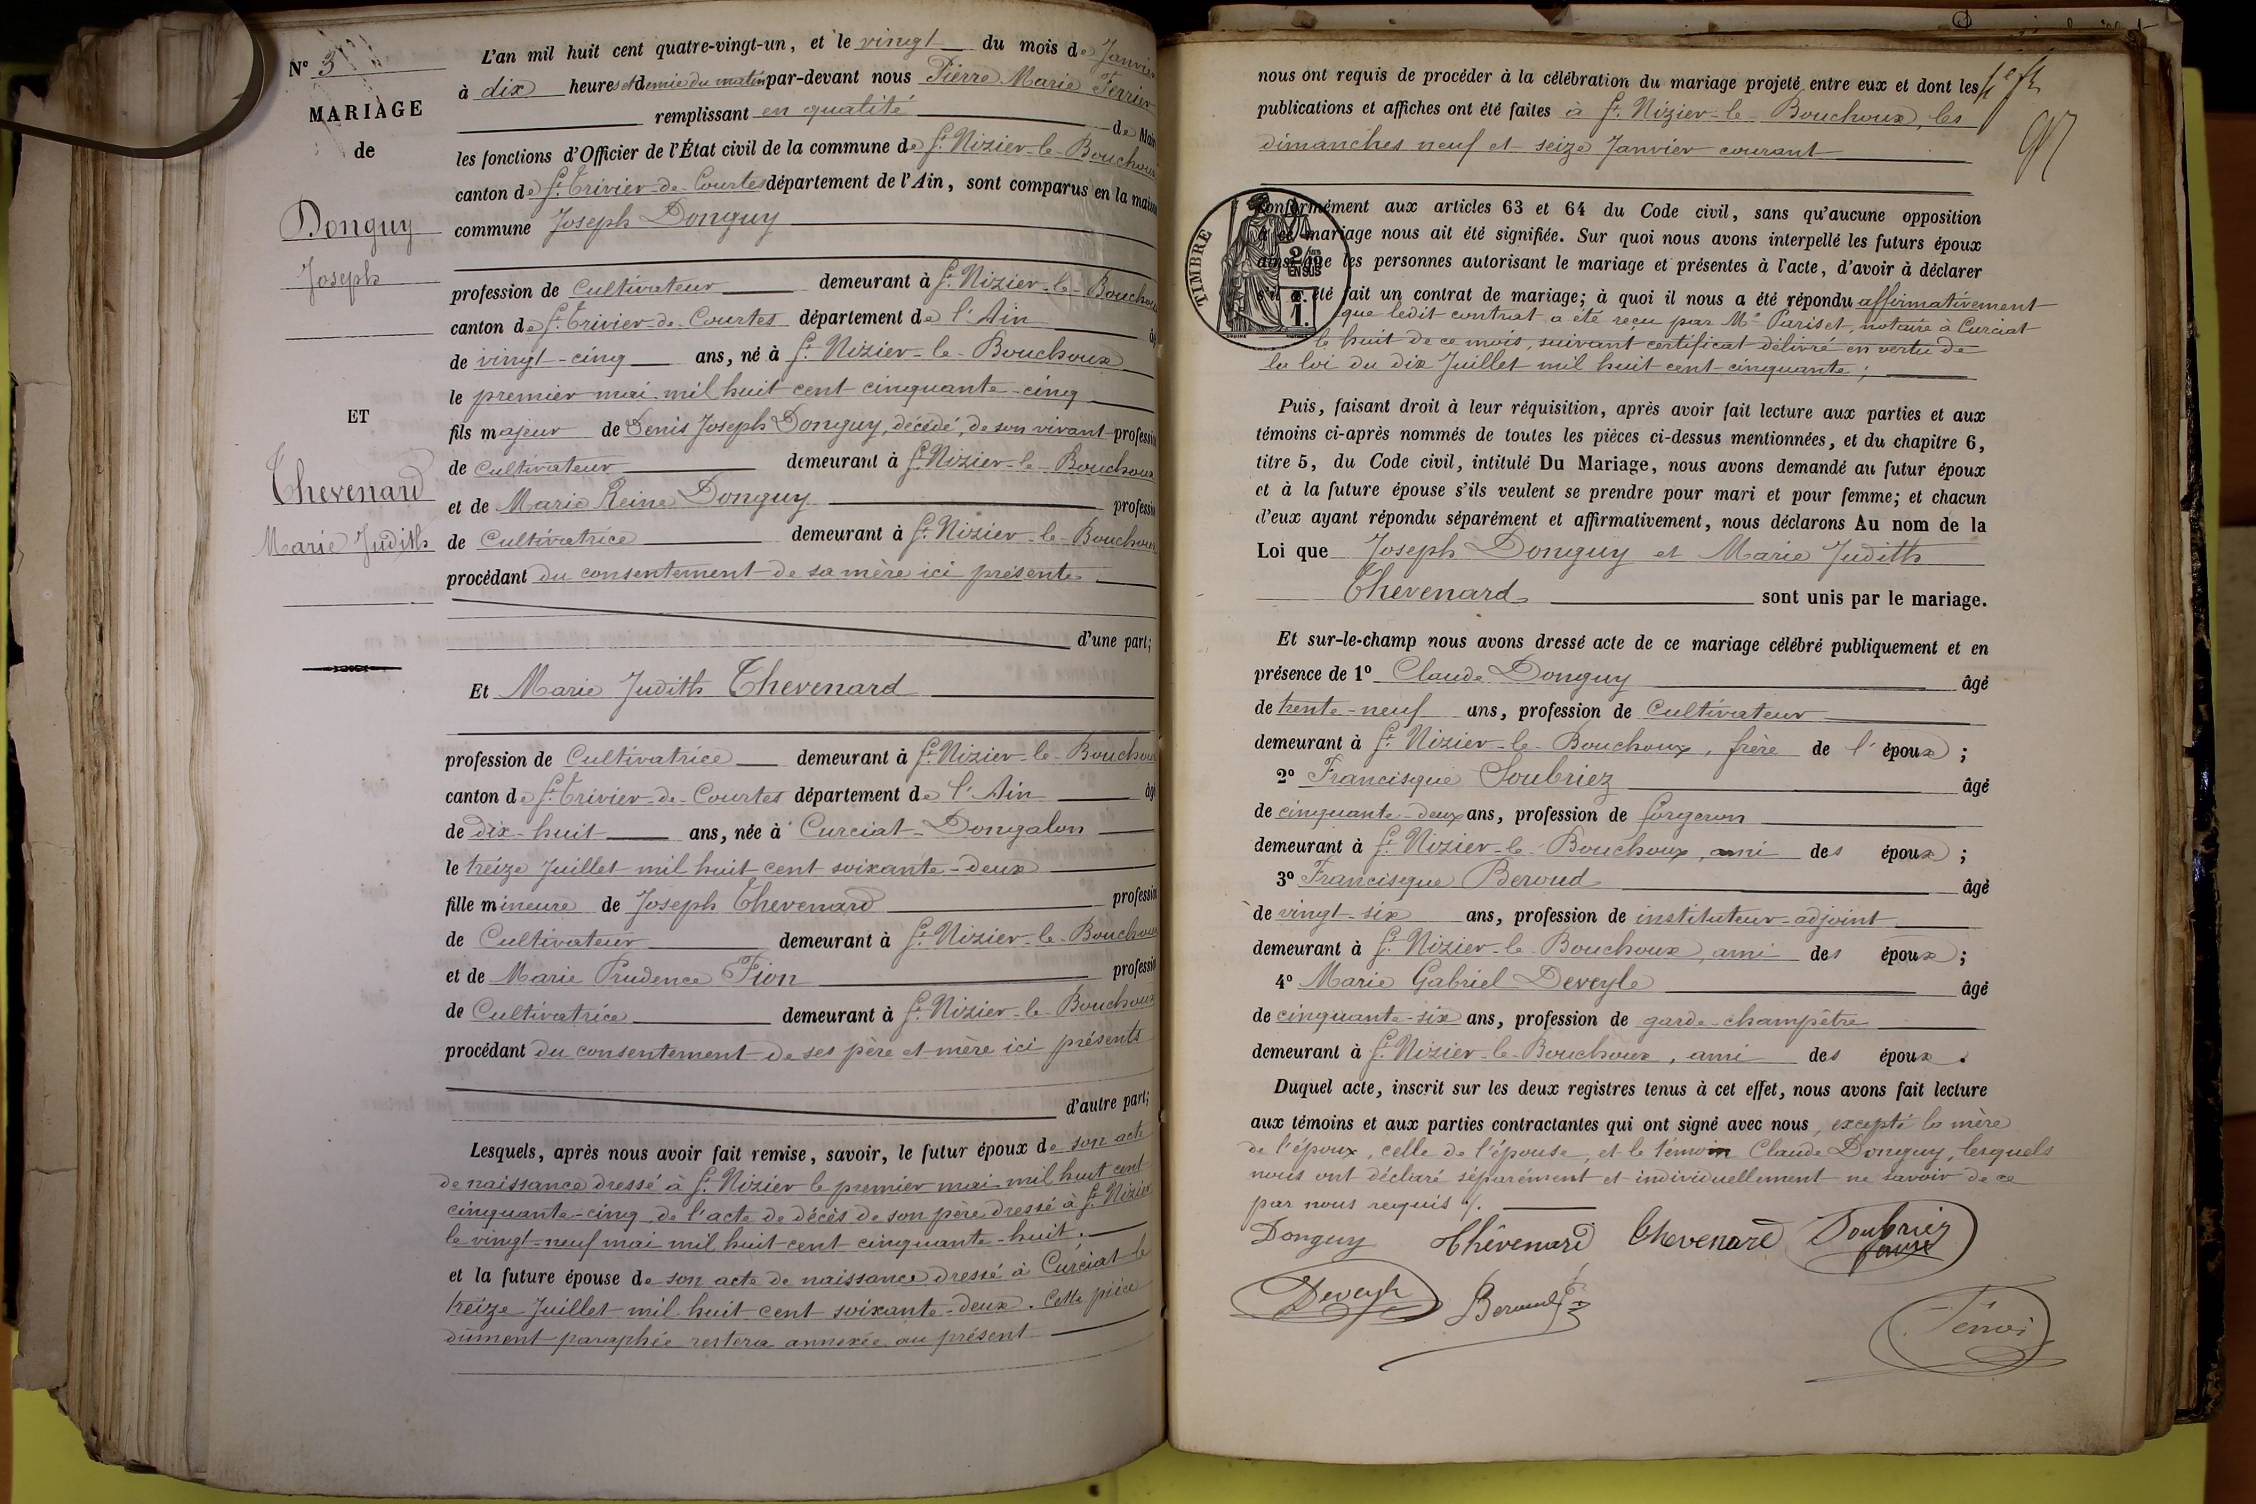 N° 3
MARIAGE
de
Donguy
Joseph
ET
Thevenard
Marie Judith
L'an mil huit cent quatre-vingt-un, et le vingt du mois de Janvier
à dix heures et demie du matin par-devant nous Pierre Marie
remplissant en qualité de Maire
les fonctions d'Officier de l'État civil de la commune de St Nizier-le-Bouchoux
canton de St Trivier-de-Courtes département de l'Ain, sont comparus en la maison
commune Joseph Donguy
profession de Cultivateur demeurant à St Nizier-le-Bouchoux
canton de St Trivier-de-Courtes département de l'Ain âg
de vingt-cinq ans, né à St Nizier-le-Bouchoux
le premier mai mil huit cent cinquante-cinq
fils majeur de Denis Joseph Donguy, décédé, de son vivant profession
de cultivateur demeurant à St Nizier-le-Bouchoux
et de Marie Reine Donguy profession
de Cultivatrice demeurant à St Nizier-le-Bouchoux
procédant du consentement de sa mère ici présente
d'une part;
Et Marie Judith Thevenard
profession de Cultivatrice demeurant à St Nizier-le-Bouchoux
canton de St Trivier-de-Courtes département de l'Ain âg
de dix-huit ans, née à Curciat-Dongalon
le treize Juillet mil huit cent soixante-deux
fille mineure de Joseph Thevenard profession
de Cultivateur demeurant à St Nizier-le-Bouchoux
et de Marie Prudence Fion profession
de Cultivatrice demeurant à St Nizier-le-Bouchoux
procédant du consentement de ses père et mère ici présents
d'autre part;
Lesquels, après nous avoir fait remise, savoir, le futur époux de son acte
de naissance dressé à St Nizier le premier mai mil huit cent
cinquante-cinq, de l'acte de décès de son père dressé à St Nizier
le vingt-neuf mai mil huit cent cinquante-huit;
et la future épouse de son acte de naissance dressé à Curciat le
treize Juillet mil huit cent soixante-deux. Cette pièce
dûment paraphée restera annexée au présent
nous ont requis de procéder à la célébration du mariage projeté entre eux et dont les
publications et affiches ont été faites à St Nizier-le-Bouchoux, les
dimanches neuf et seize Janvier courant
conformément aux articles 63 et 64 du Code civil, sans qu'aucune opposition
à ce mariage nous ait été signifiée. Sur quoi nous avons interpellé les futurs époux
ainsi que les personnes autorisant le mariage et présentes à l'acte, d'avoir à déclarer
s'il a été fait un contrat de mariage; à quoi il nous a été répondu affirmativement
que ledit contrat a été reçu par Me Pariset, notaire à Curciat
le huit de ce mois, suivant certificat délivré en vertu de
la loi du dix Juillet mil huit cent cinquante;
TIMBRE
2/10 EN SUS
1.
Puis, faisant droit à leur réquisition, après avoir fait lecture aux parties et aux
témoins ci-après nommés de toutes les pièces ci-dessus mentionnées, et du chapitre 6,
titre 5, du Code civil, intitulé Du Mariage, nous avons demandé au futur époux
et à la future épouse s'ils veulent se prendre pour mari et pour femme; et chacun
d'eux ayant répondu séparément et affirmativement, nous déclarons Au nom de la
Loi que Joseph Donguy et Marie Judith
Thevenard sont unis par le mariage.
Et sur-le-champ nous avons dressé acte de ce mariage célébré publiquement et en
présence de 1° Claude Donguy âgé
de trente-neuf ans, profession de Cultivateur
demeurant à St Nizier-le-Bouchoux, frère de l'époux;
2° Francisque Soubriez âgé
de cinquante-deux ans, profession de forgeron
demeurant à St Nizier-le-Bouchoux, ami des époux;
3° Francisque Beroud âgé
de vingt-six ans, profession de instituteur-adjoint
demeurant à St Nizier-le-Bouchoux, ami des époux;
4° Marie Gabriel Deveyle âgé
de cinquante-six ans, profession de garde-champêtre
demeurant à St Nizier-le-Bouchoux, ami des époux.
Duquel acte, inscrit sur les deux registres tenus à cet effet, nous avons fait lecture
aux témoins et aux parties contractantes qui ont signé avec nous, excepté la mère
de l'époux, celle de l'épouse, et le témoin Claude Donguy, lesquels
nous ont déclaré séparément et individuellement ne savoir de ce
par nous requis
Donguy Thévenard Thevenard Soubriez
Deveyle Beroud